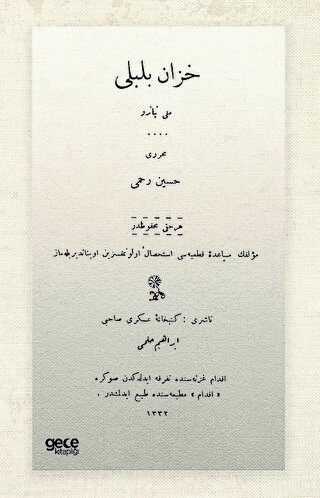 خزان بلبلی
ملی تیاترو
....
محرری
حسین رحمی
هر حقی محفوظدر
مؤلفك مساعدهٔ قطعیه‌سی استحصال اولونمقسزین اویناندیریله‌ماز
ناشری : كتبخانهٔ عسكری صاحبی
ابراهیم حلمی
اقدام غزته‌سنده تفرقه ایدلدكدن صوكره
« اقدام » مطبعه‌سنده طبع ایدلشدر .
١٣٣٢
gece
kitaplığı